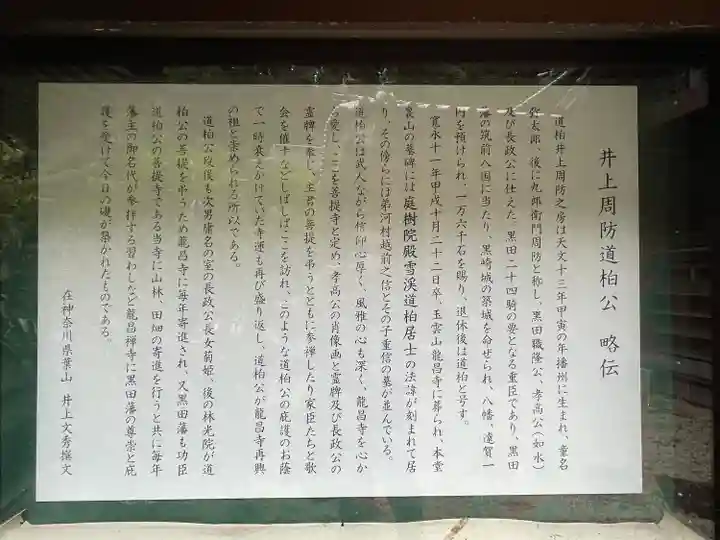 井上周防道柏公 略伝
道柏井上周防之房は天文十三年甲寅の年播州に生まれ、童名
弥太郎、後に九郎衛門周防と称し、黒田職隆公、孝高公（如水）
及び長政公に仕えた 黒田二十四騎の要となる重臣であり、黒田
藩の筑前入国に当たり、黒崎城の築城を命ぜられ、八幡、遠賀一
円を預けられ、一万六千石を賜り、退休後は道柏と号す。
寛永十一年甲戌十月二十二日卒、玉雲山龍昌寺に葬られ、本堂
裏山の墓碑には庭樹院殿雪渓道柏居士の法諱が刻まれて居
り、その傍らには弟河村越前之信とその子重信の墓が並んでいる。
道柏公は武人ながら信仰心厚く、風雅の心も深く、龍昌寺を心か
ら愛し、ここを菩提寺と定め、孝高公の肖像画と霊牌及び長政公の
霊牌を奉じ、主君の菩提を弔うとともに参禅したり家臣たちと歌
会を催すなどしばしばここを訪れ、このような道柏公の庇護のお蔭
で一時衰えかけていた寺運も再び盛り返し、道柏公が龍昌寺再興
の祖と崇められる所以である。
道柏公歿後も次男庸名の室の長政公長女菊姫、後の林光院が道
柏公の菩提を弔うため龍昌寺に毎年寄進され、又黒田藩も功臣
道柏公の菩提寺である当寺に山林、田畑の寄進を行うと共に毎年
藩主の御名代が参拝する習わしなど龍昌禅寺に黒田藩の尊崇と庇
護を受けて今日の礎が築かれたものである。
在神奈川県葉山 井上文秀撰文